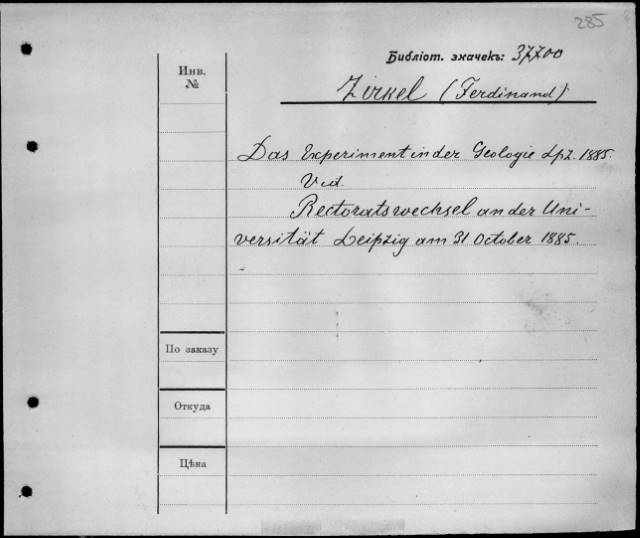 285
Библіот. значекъ: 37700
Инв.
№
Zirkel (Ferdinand)
Das Experiment in der Geologie Lpz. 1885.
Vid.
Rectoratswechsel an der Uni-
versität Leipzig am 31 October 1885.
По заказу
Откуда
Цѣна